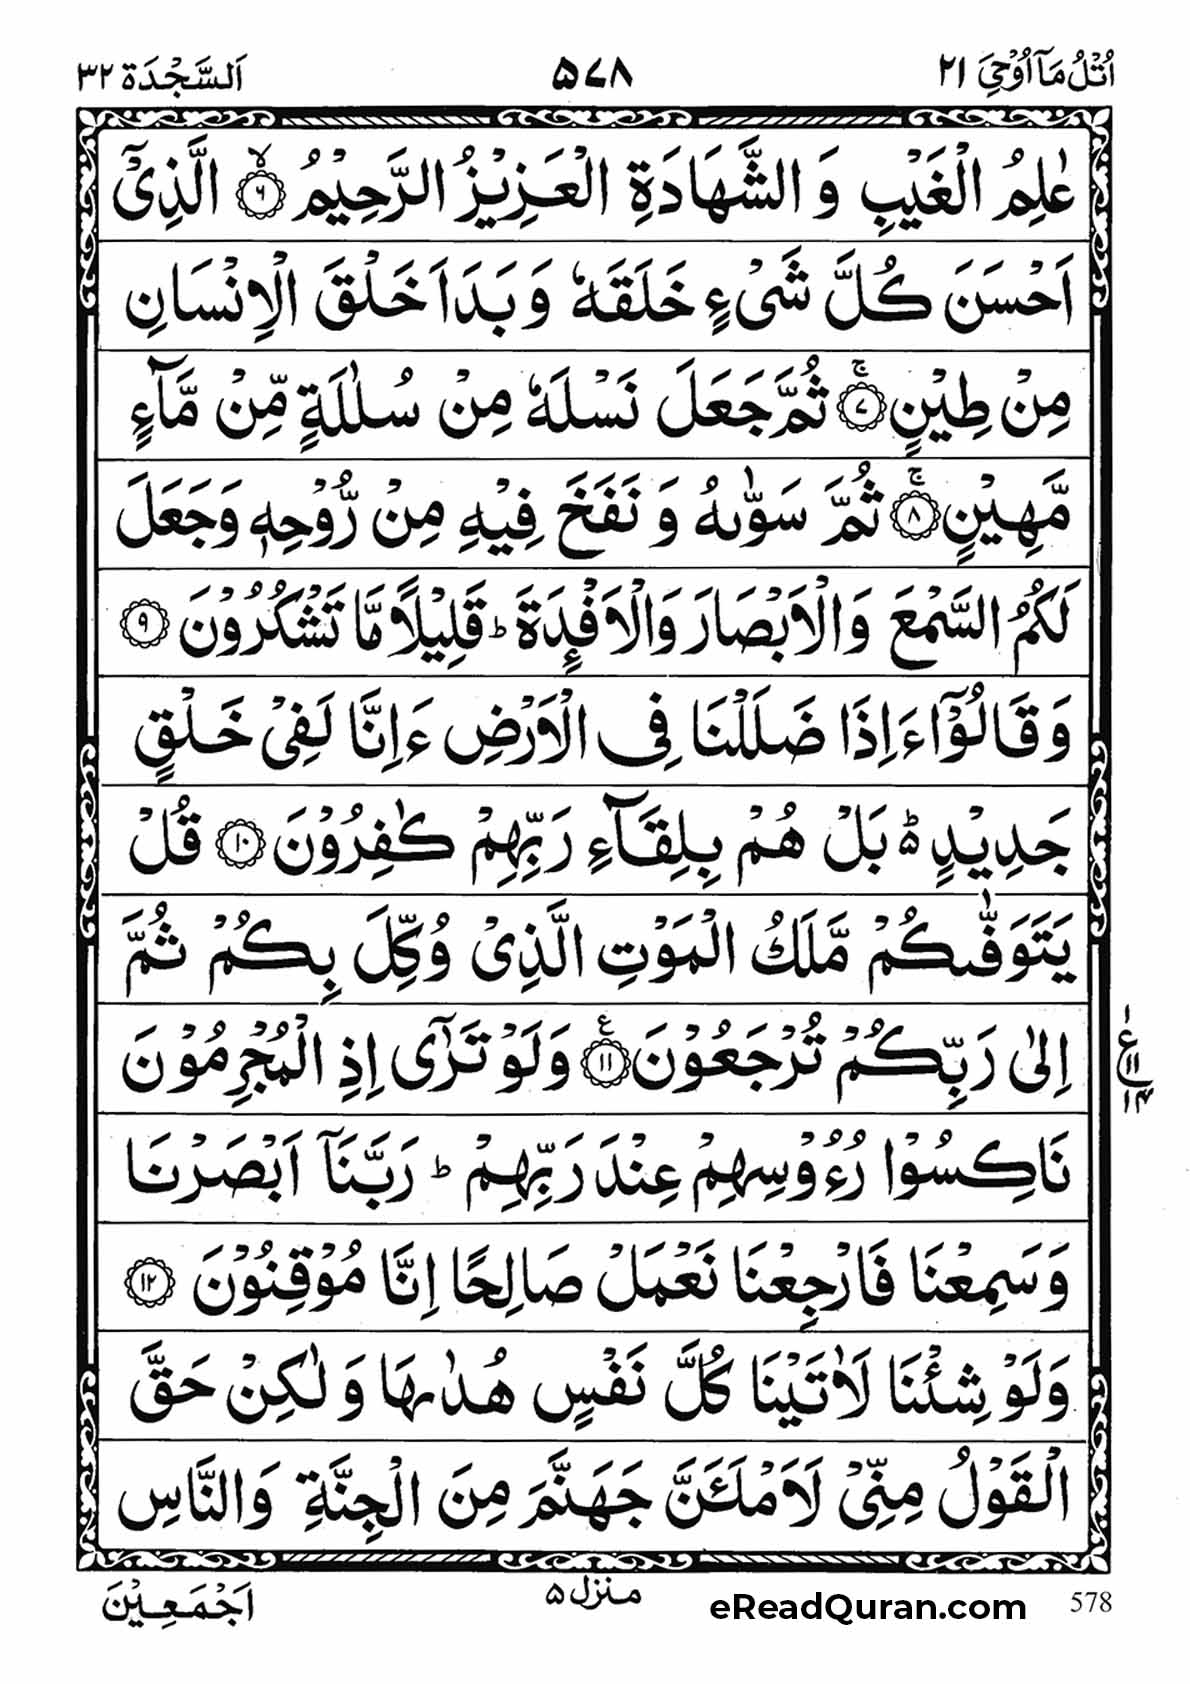 اُتْلُ مَاۤ اُوْحِیَ ۲۱
۵۷۸
اَلسَّجْدَة ۳۲
عٰلِمُ الْغَیْبِ وَ الشَّهَادَةِ الْعَزِیْزُ الرَّحِیْمُ ۙ۶ الَّذِیْۤ
اَحْسَنَ كُلَّ شَیْءٍ خَلَقَهٗ وَ بَدَاَ خَلْقَ الْاِنْسَانِ
مِنْ طِیْنٍ ۚ۷ ثُمَّ جَعَلَ نَسْلَهٗ مِنْ سُلٰلَةٍ مِّنْ مَّآءٍ
مَّهِیْنٍ ۚ۸ ثُمَّ سَوّٰىهُ وَ نَفَخَ فِیْهِ مِنْ رُّوْحِهٖ وَ جَعَلَ
لَكُمُ السَّمْعَ وَ الْاَبْصَارَ وَ الْاَفْـِٕدَةَ ؕ قَلِیْلًا مَّا تَشْكُرُوْنَ ۹
وَ قَالُوْۤا ءَاِذَا ضَلَلْنَا فِی الْاَرْضِ ءَاِنَّا لَفِیْ خَلْقٍ
جَدِیْدٍ ؕ۬ بَلْ هُمْ بِلِقَآءِ رَبِّهِمْ كٰفِرُوْنَ ۱۰ قُلْ
یَتَوَفّٰىكُمْ مَّلَكُ الْمَوْتِ الَّذِیْ وُكِّلَ بِكُمْ ثُمَّ
اِلٰى رَبِّكُمْ تُرْجَعُوْنَ ۱۱ ع وَ لَوْ تَرٰۤى اِذِ الْمُجْرِمُوْنَ
نَاكِسُوْا رُءُوْسِهِمْ عِنْدَ رَبِّهِمْ ؕ رَبَّنَاۤ اَبْصَرْنَا
وَ سَمِعْنَا فَارْجِعْنَا نَعْمَلْ صَالِحًا اِنَّا مُوْقِنُوْنَ ۱۲
وَ لَوْ شِئْنَا لَاٰتَیْنَا كُلَّ نَفْسٍ هُدٰىهَا وَ لٰكِنْ حَقَّ
الْقَوْلُ مِنِّیْ لَاَمْلَـَٔنَّ جَهَنَّمَ مِنَ الْجِنَّةِ وَ النَّاسِ
۱
ع
۱۱
۱۴
578
eReadQuran.com
منزل ۵
اَجْمَعِیْنَ